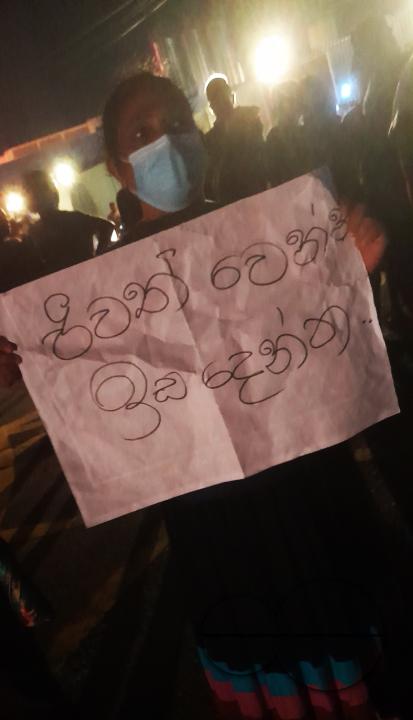 ජීවත් වෙන්න
ඉඩ දෙන්න..